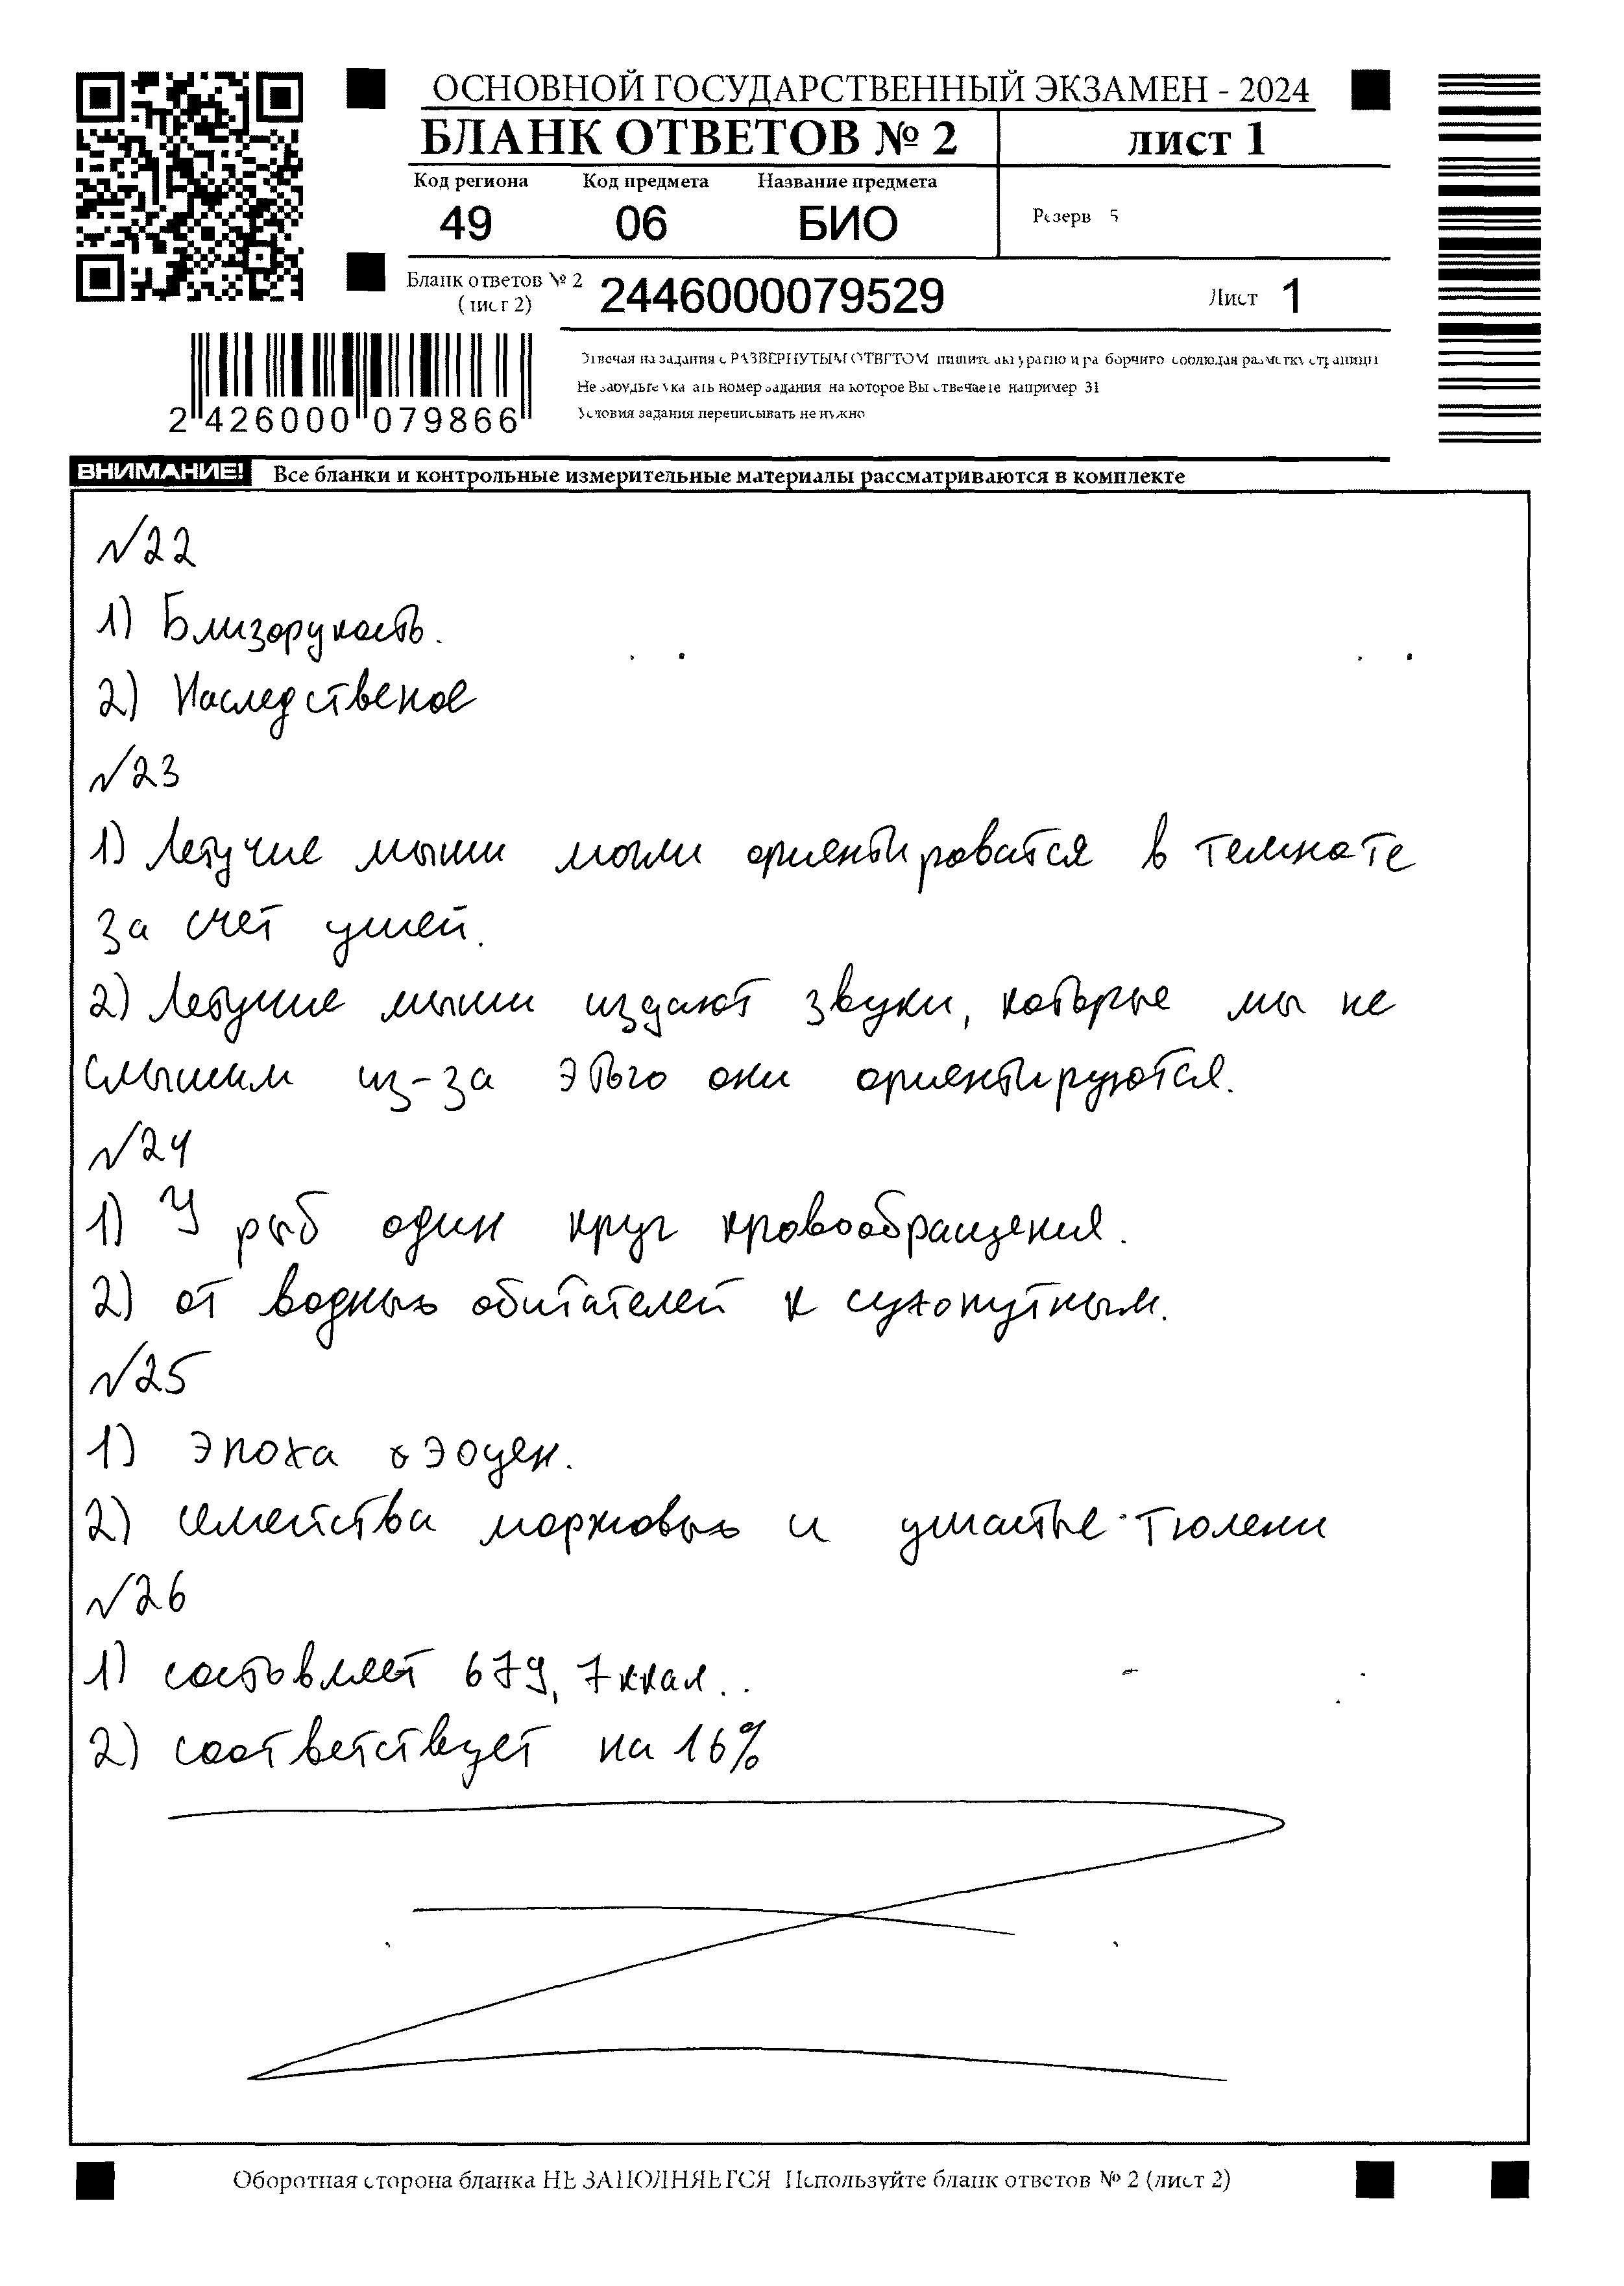 ОСНОВНОЙ ГОСУДАРСТВЕННЫЙ ЭКЗАМЕН - 2024
БЛАНК ОТВЕТОВ № 2
лист 1
Код региона Код предмета Название предмета
49 06 БИО
Резерв 5
Бланк ответов № 2
(лист 2)
2446000079529
Лист 1
2 426000 079866
Отвечая на задания с РАЗВЕРНУТЫМ ОТВЕТОМ пишите аккуратно и разборчиво соблюдая разметку страницы
Не забудьте указать номер задания на которое Вы отвечаете например 31
Условия задания переписывать не нужно
ВНИМАНИЕ! Все бланки и контрольные измерительные материалы рассматриваются в комплекте
√22
1) Близорукость.
2) Наследственое
√23
1) Летучие мыши могли ориентироватся в темноте
за счет ушей.
2) Летучие мыши издают звуки, которые мы не
слышим из-за этого они ориентируются.
√24
1) У рыб один круг кровообращения.
2) от водных обитателей к сухопутным.
√25
1) эпоха эоцен.
2) семейства моржовых и ушастые тюлени
√26
1) состовляет 679,7 ккал..
2) соответствует на 16%
Оборотная сторона бланка НЕ ЗАПОЛНЯЕТСЯ Используйте бланк ответов № 2 (лист 2)